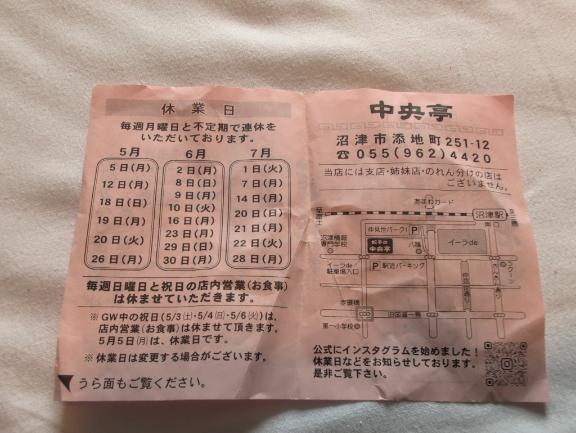 休業日
毎週月曜日と不定期で連休を
いただいております。
5月 6月 7月
5日(月) 2日(月) 1日(火)
12日(月) 8日(日) 7日(月)
18日(日) 9日(月) 14日(月)
19日(月) 10日(火) 20日(日)
20日(火) 16日(月) 21日(月)
26日(月) 23日(月) 22日(火)
29日(日) 28日(月)
30日(月)
毎週日曜日と祝日の店内営業(お食事)
は休ませていただきます。
※GW中の祝日(5/3(土)・5/4(日)・5/6(火))は、
店内営業(お食事)は休ませて頂きます。
5月5日(月)は、休業日です。
※休業日は変更する場合がございます。
うら面もご覧ください。
中央亭
沼津市添地町251-12
☎055(962)4420
当店には支店・姉妹店・のれん分けの店は
ございません。
あまねガード
沼津駅
仲見世パーク1 P
沼津情報
専門学校
餃子の
中央亭
八幡
イーラde
イーラde
駐車場入口
P 駅近パーキング
ラクーン
仲見世通り
さんさん通り
本環橋
旧国道一号
第一小学校
公式にインスタグラムを始めました！
休業日などをお知らせしております。
是非ご覧下さい。